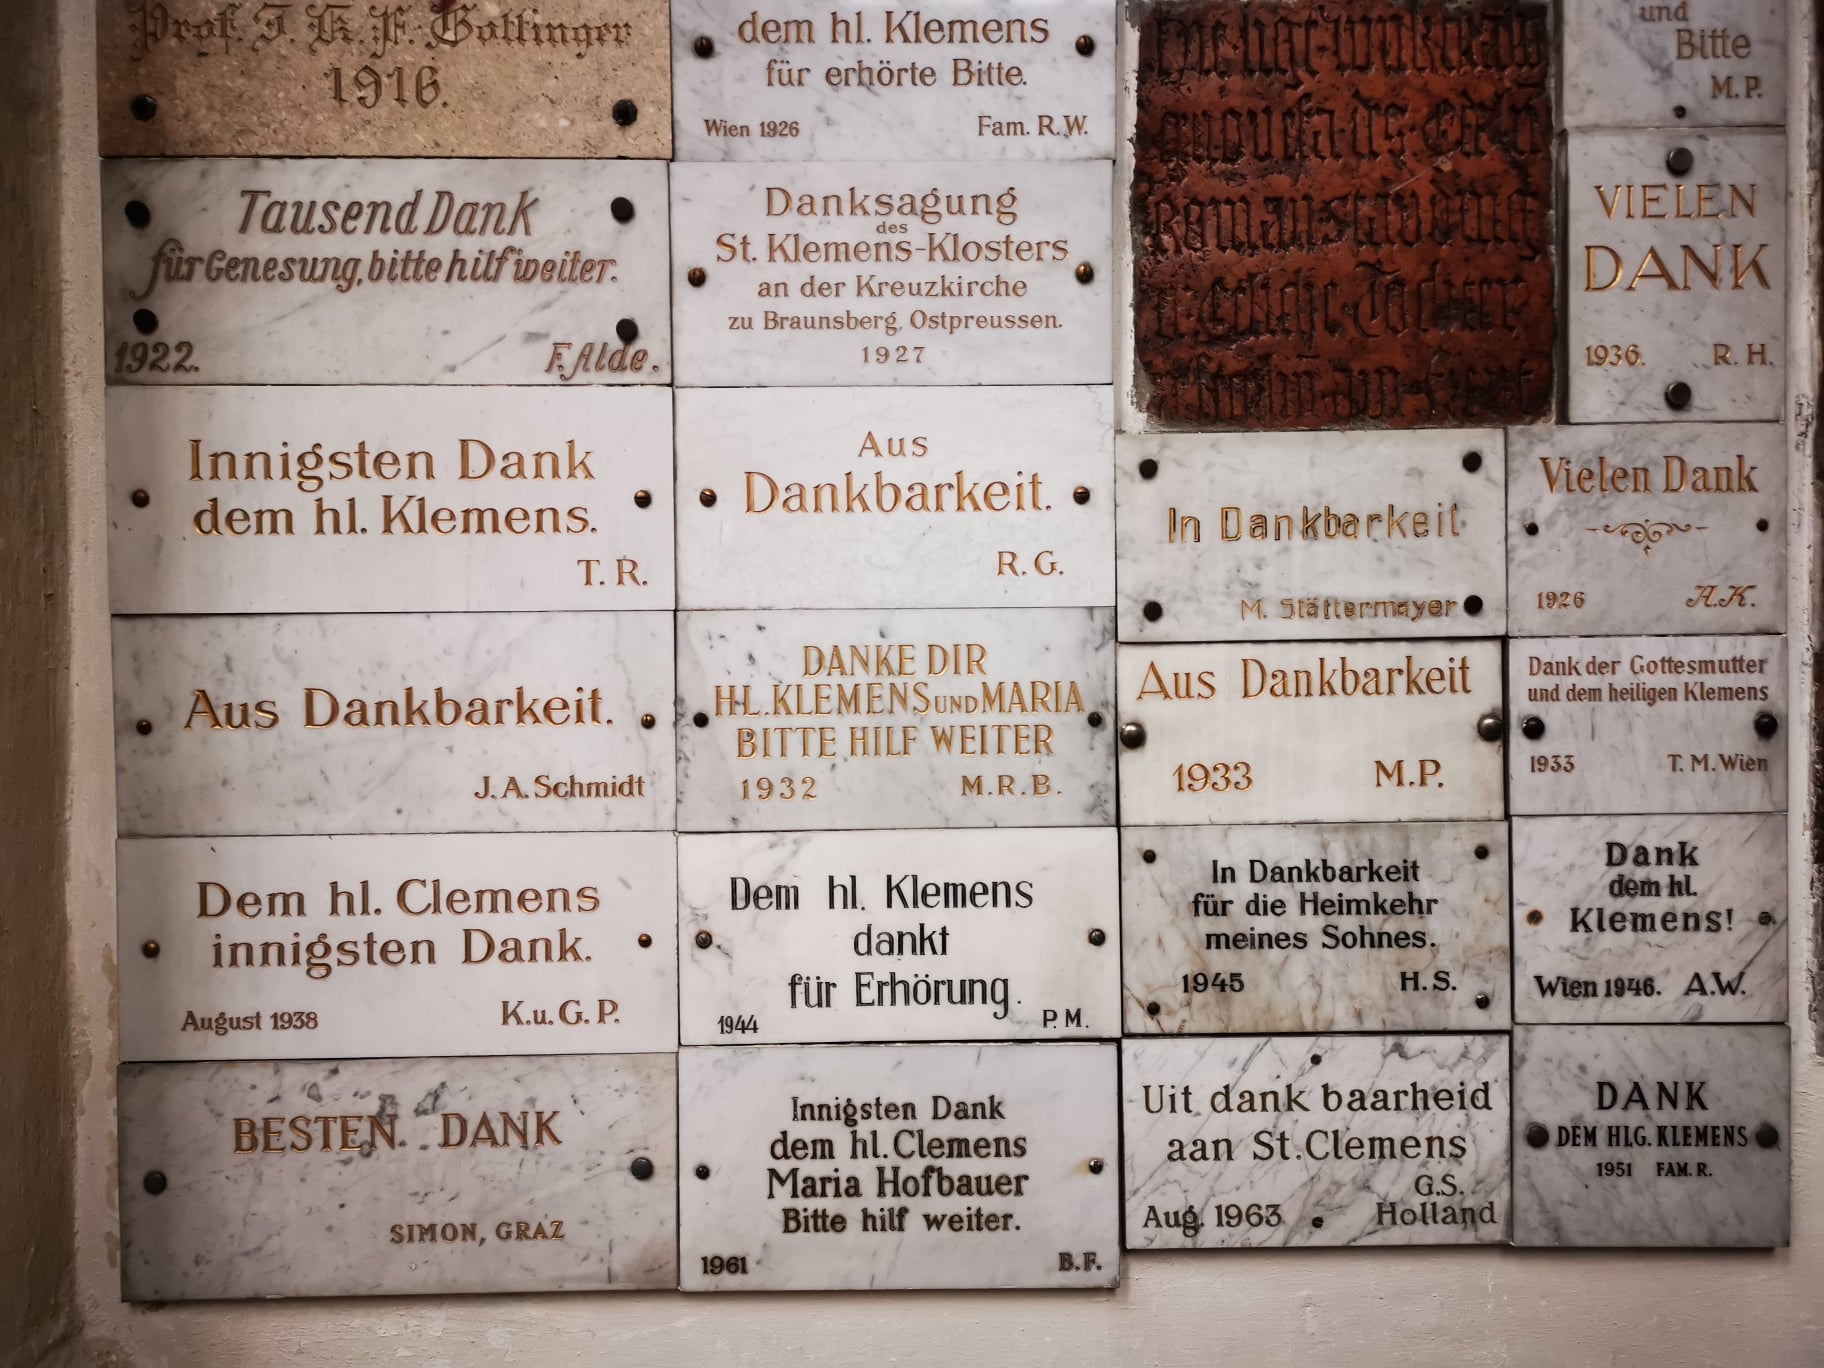 Prof. J. K. F. Gollinger
1916.
Tausend Dank
für Genesung, bitte hilf weiter.
1922. F. Alde.
Innigsten Dank
dem hl. Klemens.
T. R.
Aus Dankbarkeit.
J. A. Schmidt
Dem hl. Clemens
innigsten Dank.
August 1938 K. u. G. P.
BESTEN DANK
SIMON, GRAZ
dem hl. Klemens
für erhörte Bitte.
Wien 1926 Fam. R. W.
Danksagung
des
St. Klemens-Klosters
an der Kreuzkirche
zu Braunsberg, Ostpreussen.
1927
Aus
Dankbarkeit.
R. G.
DANKE DIR
HL. KLEMENS UND MARIA
BITTE HILF WEITER
1932 M. R. B.
Dem hl. Klemens
dankt
für Erhörung.
1944 P. M.
Innigsten Dank
dem hl. Clemens
Maria Hofbauer
Bitte hilf weiter.
1961 B. F.
In Dankbarkeit
M. Stättermayer
Aus Dankbarkeit
1933 M. P.
In Dankbarkeit
für die Heimkehr
meines Sohnes.
1945 H. S.
Uit dank baarheid
aan St. Clemens
G. S.
Aug. 1963 Holland
und
Bitte
M. P.
VIELEN
DANK
1936. R. H.
Vielen Dank
1926 A. K.
Dank der Gottesmutter
und dem heiligen Klemens
1933 T. M. Wien
Dank
dem hl.
Klemens!
Wien 1946. A. W.
DANK
DEM HLG. KLEMENS
1951 FAM. R.